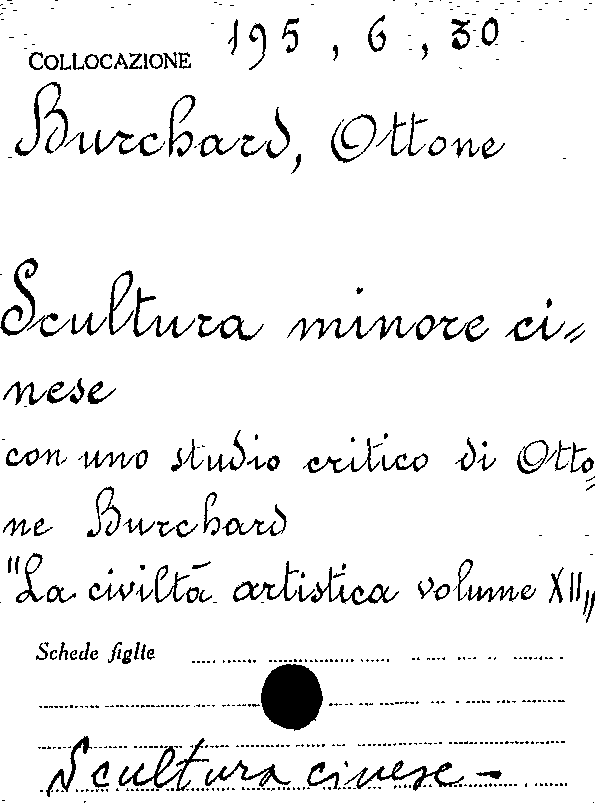 COLLOCAZIONE 195, 6, 30
Burchard, Ottone
Scultura minore ci=
nese
con uno studio critico di Otto=
ne Burchard
"La civiltà artistica volume XII„
Schede figlie
Scultura cinese -